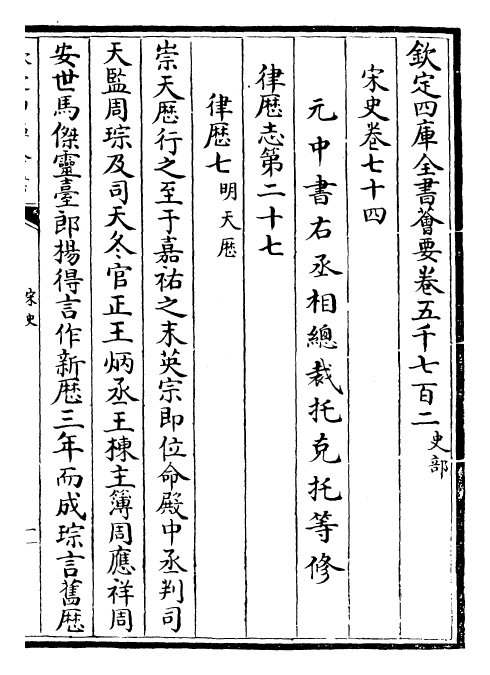 欽定四庫全書薈要卷五千七百二 史部
宋史卷七十四
元中書右丞相總裁托克托等修
律歴志第二十七
律歴七 明天歴
崇天歴行之至于嘉祐之末英宗即位命殿中丞判司
天監周琮及司天冬官正王炳丞王棟主簿周應祥周
安世馬傑靈臺郎楊得言作新歴三年而成琮言舊歴
宋史
一